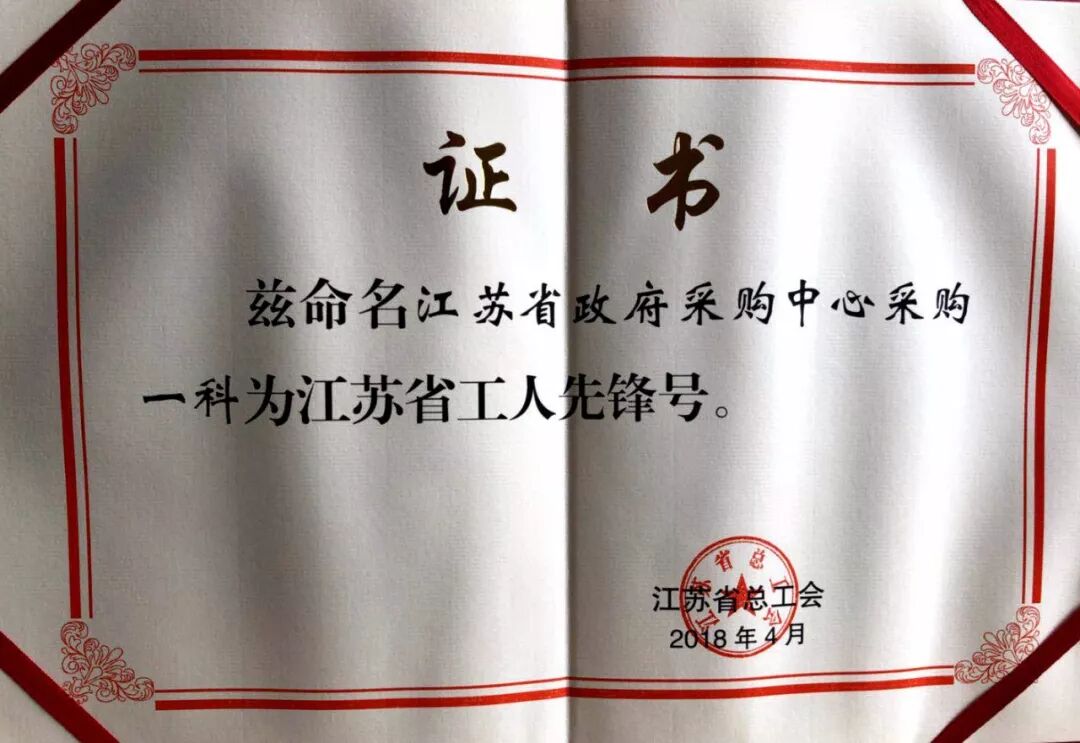 证 书
兹命名江苏省政府采购中心采购
一科为江苏省工人先锋号。
江苏省总工会
江苏省总工会
2018年4月